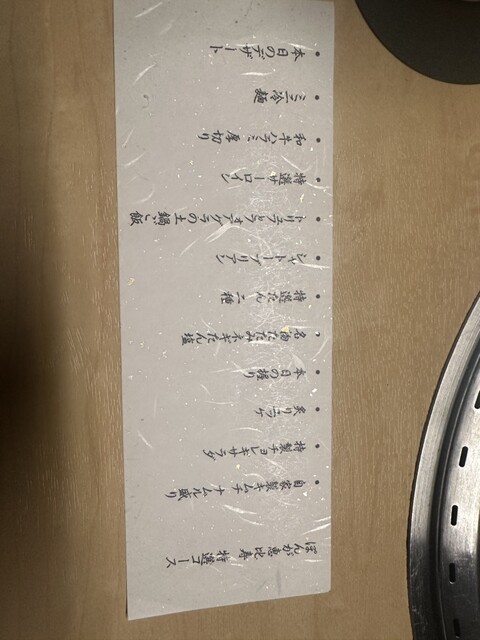 ぽんが 恵比寿 特選コース
・自家製キムチ ナムル盛り
・特製チョレギサラダ
・炙りユッケ
・本日の握り
・名前たたみネギたん塩
・特選たん 二種
・シャトーブリアン
・トリュフとフォアグラの土鍋ご飯
・特選サーロイン
・和牛ハラミ 厚切り
・ミニ冷麺
・本日のデザート